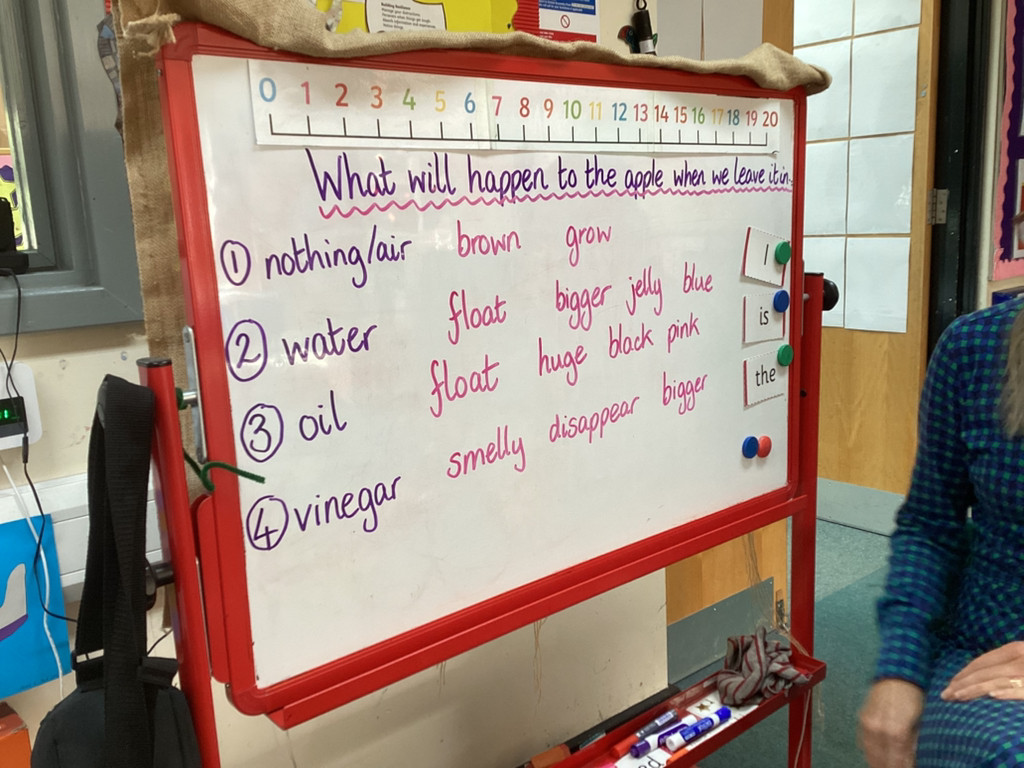 Building Resilience
0 1 2 3 4 5 6 7 8 9 10 11 12 13 14 15 16 17 18 19 20
What will happen to the apple when we leave it in
1 nothing/air brown grow
2 water float bigger jelly blue
3 oil float huge black pink
4 vinegar smelly disappear bigger
I
is
the